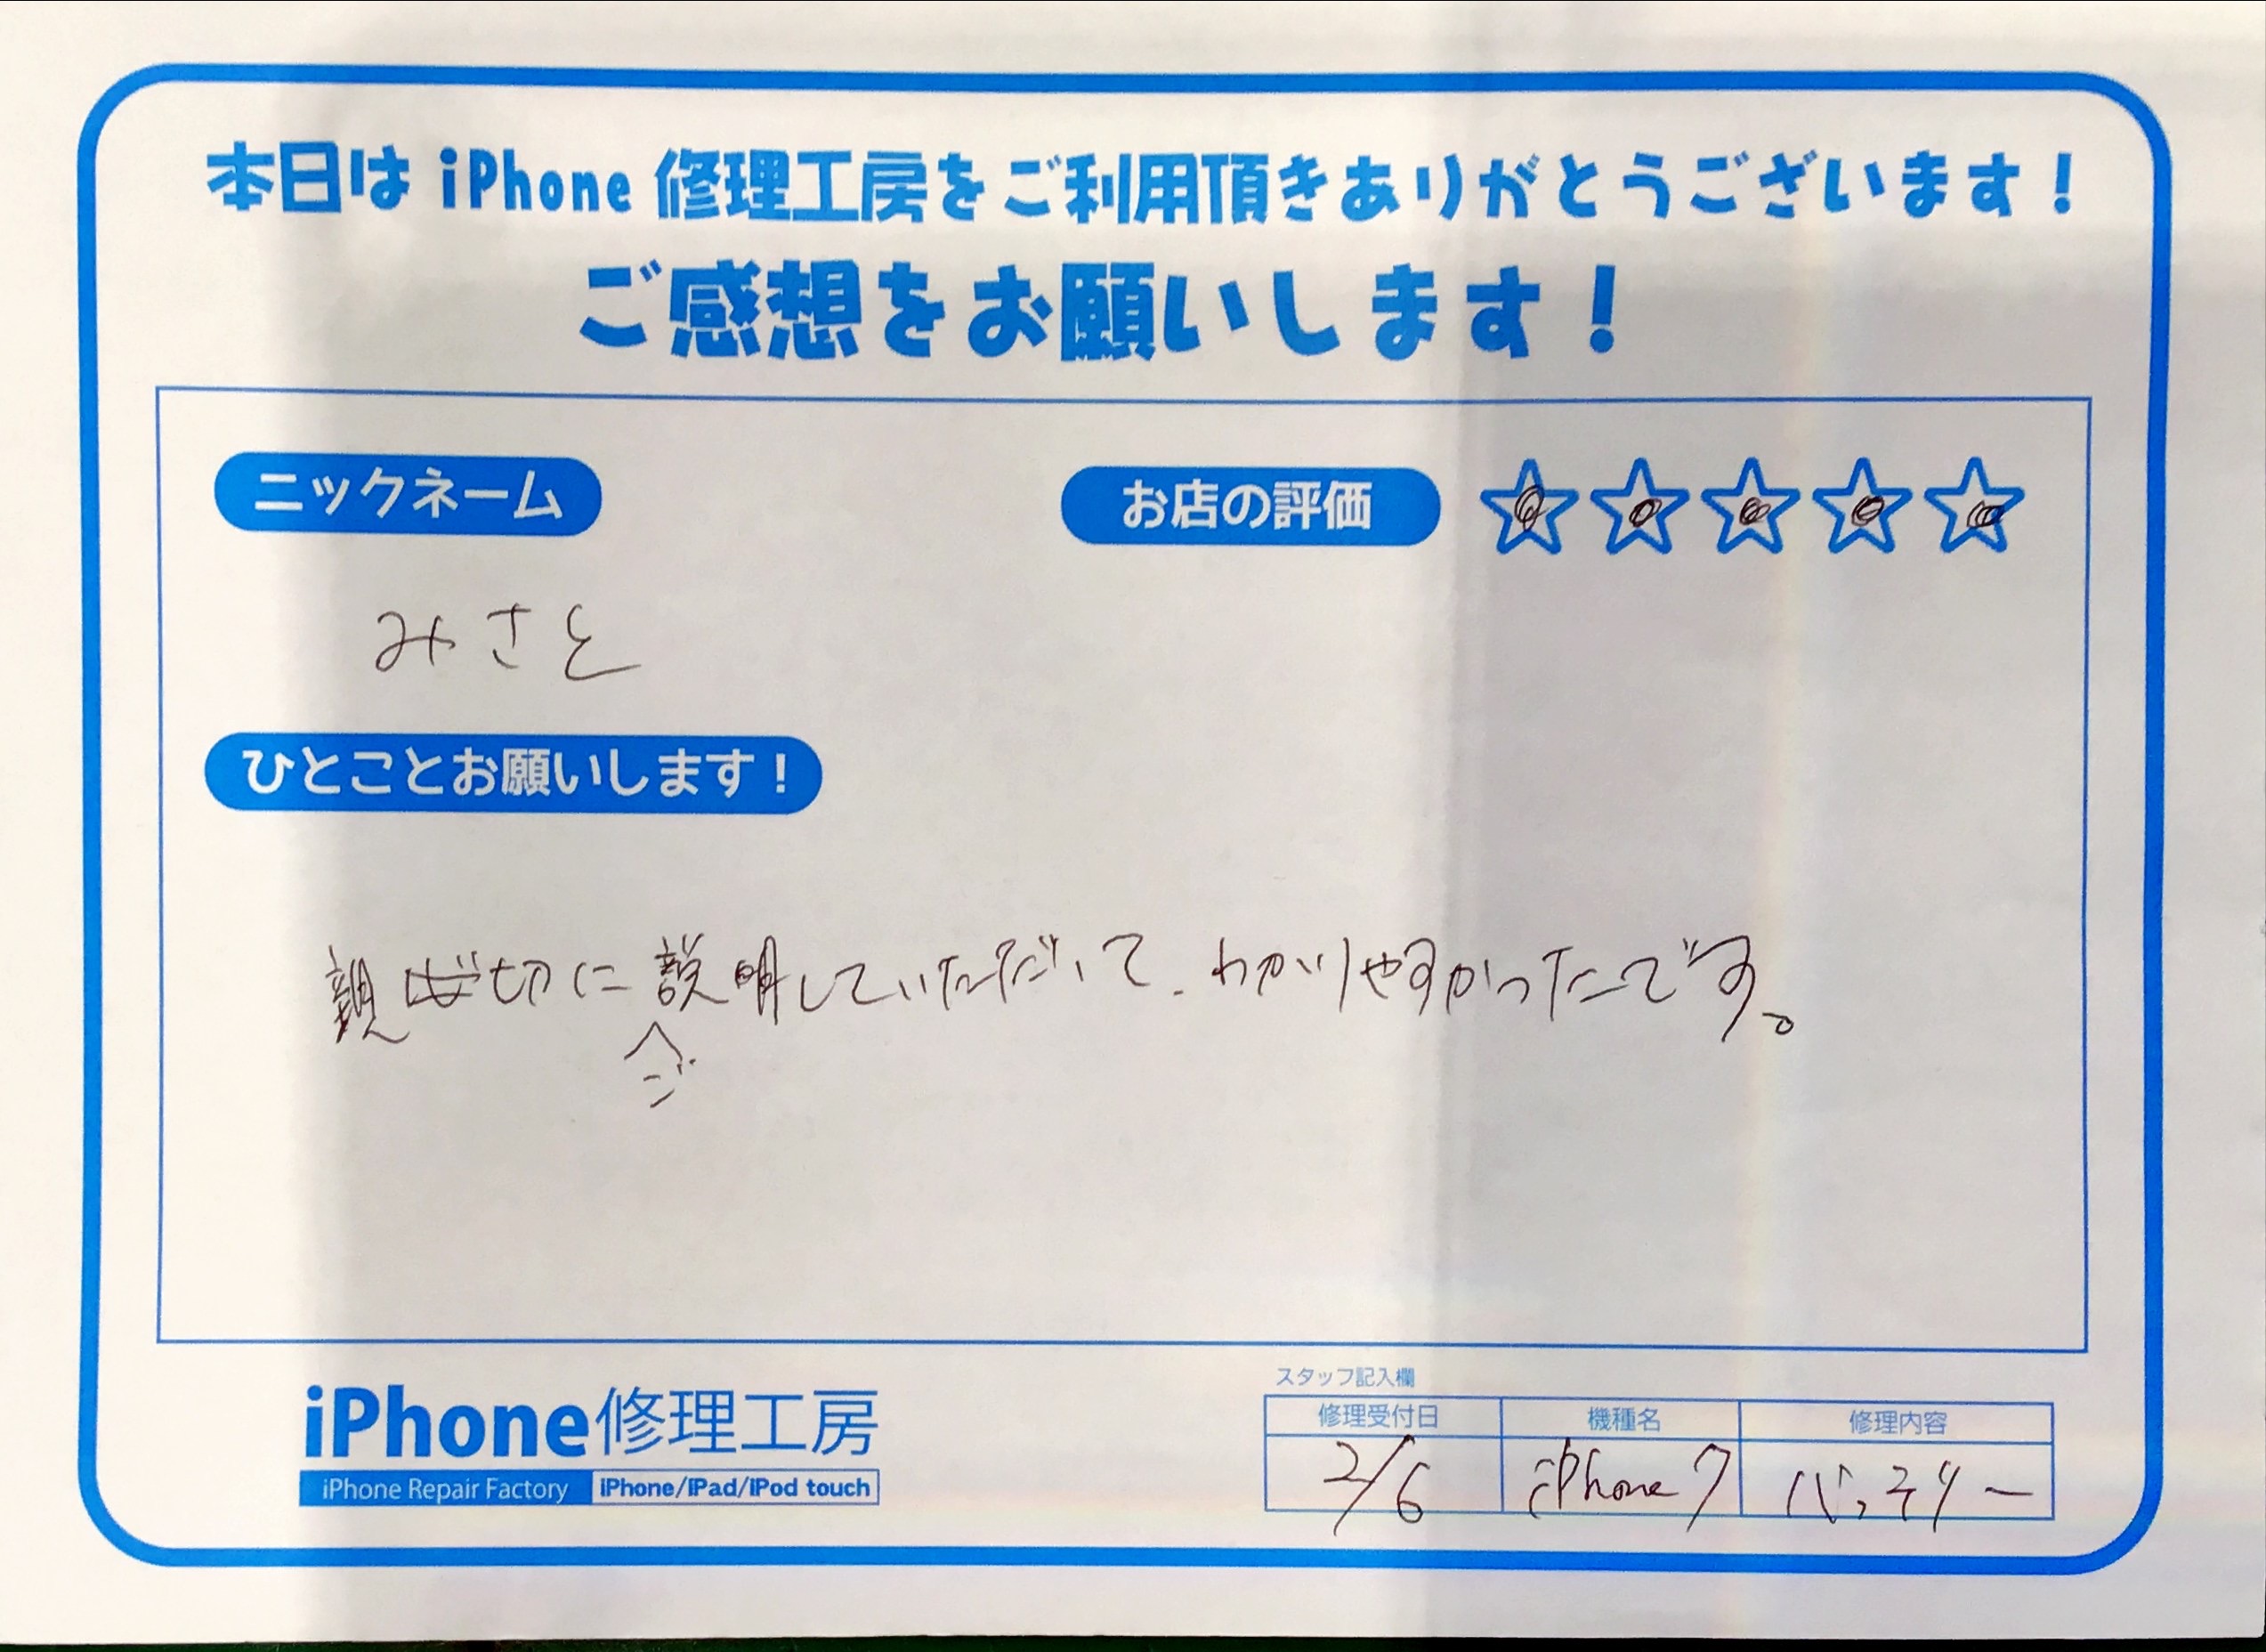 本日は iPhone 修理工房をご利用頂きありがとうございます！
ご感想をお願いします！
ニックネーム
お店の評価
みさと
ひとことお願いします！
親切にご説明していただいて、わかりやすかったです。
iPhone修理工房
iPhone Repair Factory iPhone/iPad/iPod touch
スタッフ記入欄
修理受付日 機種名 修理内容
2/6 iPhone7 バッテリー